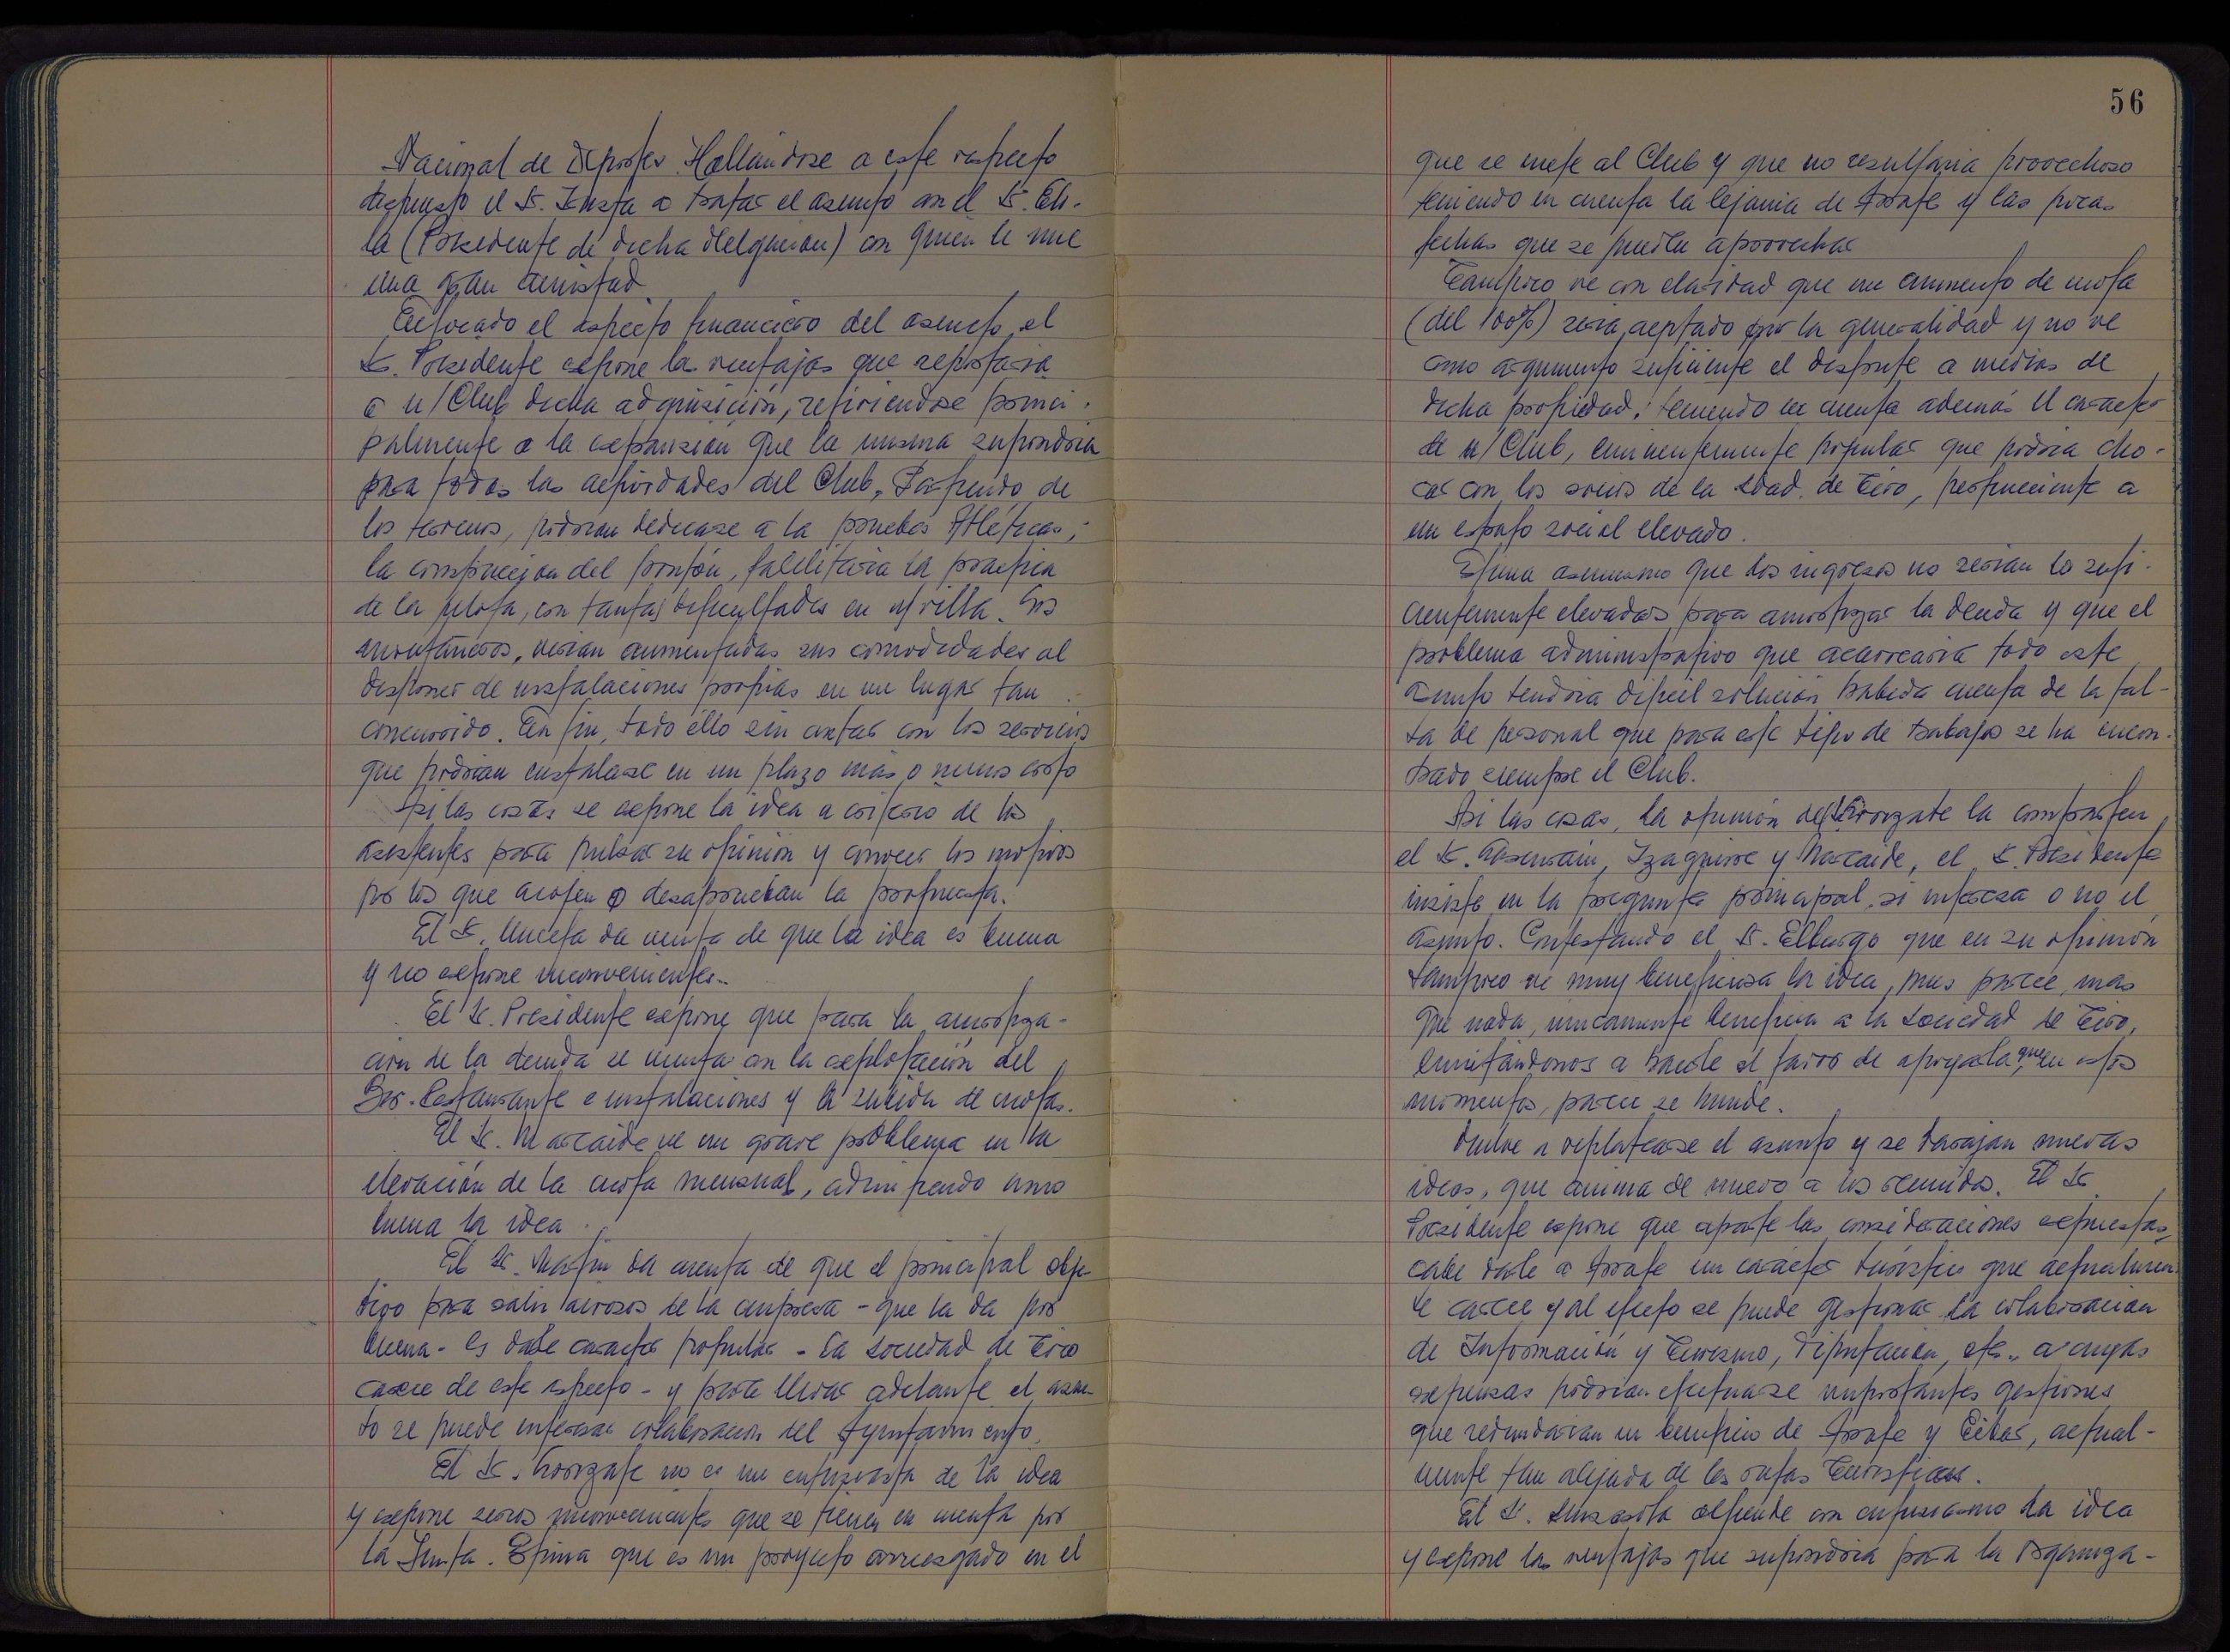 Nacional de Deportes. Hallándose a este respecto
dispuesto el Sr. Iusta a tratar el asunto con el Sr. Eli-
la (Presidente de dicha Delegación) con quien le une
una gran amistad.
Enfocado el aspecto financiero del asunto, el
Sr. Presidente expone las ventajas que reportaria
a n/Club dicha adquisición, refiriendose princi-
palmente a la expansión que la misma supondria
para todas las actividades del Club. Partiendo de
los terrenos, podrian dedicarse a la pruebas Atléticas;
la construcción del frontón, facilitaria la practica
de la pelota, con tantas dificultades en n/villa. Los
montañeros, verian aumentadas sus comodidades al
disponer de instalaciones propias en un lugar tan
concurrido. En fin, todo éllo sin contar con los servicios
que podrian instalarse en un plazo más o menos corto
Asi las cosas se expone la idea a criterio de los
asistentes para pulsar su opinión y conocer los motivos
por los que acojen o desaprueban la propuesta.
El Sr. Unceta da cuenta de que la idea es buena
y no expone inconvenientes.-
El Sr. Presidente expone que para la amortiza-
ción de la deuda se cuenta con la explotación del
Bar-Restaurante e instalaciones y la subida de cuotas.
El Sr. Marcaide ve un grave problema en la
elevación de la cuota mensual, admitiendo como
buena la idea.
El Sr. Martin da cuenta de que el principal obje-
tivo para salir airosos de la empresa - que la da por
buena - es darle caracter popular - La Sociedad de Tiro
carece de este aspecto - y para llevar adelante el asun-
to se puede interesar colaboración del Ayuntamiento.
El Sr. Arorzate no es un entusiasta de la idea
y expone serios inconvenientes que se tienen en cuenta por
la Junta. Estima que es un proyecto arriesgado en el
56
que se mete al Club y que no resultaria provechoso
teniendo en cuenta la lejania de Arrate y las pocas
fechas que se puedan aprovechar
Tampoco ve con claridad que un aumento de cuota
(del 100%) seria aceptado por la generalidad y no ve
como argumento suficiente el disfrute a medias de
dicha propiedad; teniendo en cuenta además el caracter
de n/Club, eminentemente popular que podria cho-
car con los socios de la Sdad. de Tiro, perteneciente a
un estrato social elevado.
Estima asimismo que los ingresos no serian lo sufi-
cientemente elevados para amortizar la deuda y que el
problema administrativo que acarrearia todo este
asunto tendria dificil solución habida cuenta de la fal-
ta de personal que para este tipo de trabajos se ha encon-
trado siempre el Club.
Asi las cosas, la opinión del Sr. Arorzate la comparten
el Sr. Asensain, Izaguirre y Marcaide, el Sr. Presidente
insiste en la pregunta principal, si interesa o no el
asunto. Contestando el Sr. Elburgo que en su opinión
tampoco ve muy beneficiosa la idea, pues parece, más
que nada, unicamente beneficia a la Sociedad de Tiro,
limitándonos a hacerle el favor de apoyarla, que en estos
momentos, parece se hunde.
Vuelve a replatearse el asunto y se barajan nuevas
ideas, que anima de nuevo a los reunidos. El Sr.
Presidente expone que aparte las consideraciones expuestas,
cabe darle a Arrate un caracter turistico que actualmen-
te carece y al efecto se puede gestionar la colaboración
de Información y Turismo, Diputación, etc., a cuyas
expensas podrian efectuarse importantes gestiones
que redundarian en beneficio de Arrate y Eibar, actual-
mente tan alejada de las rutas Turisticas.
El Sr. defiende con entusiasmo la idea
y expone las ventajas que supondria para la Organiza-